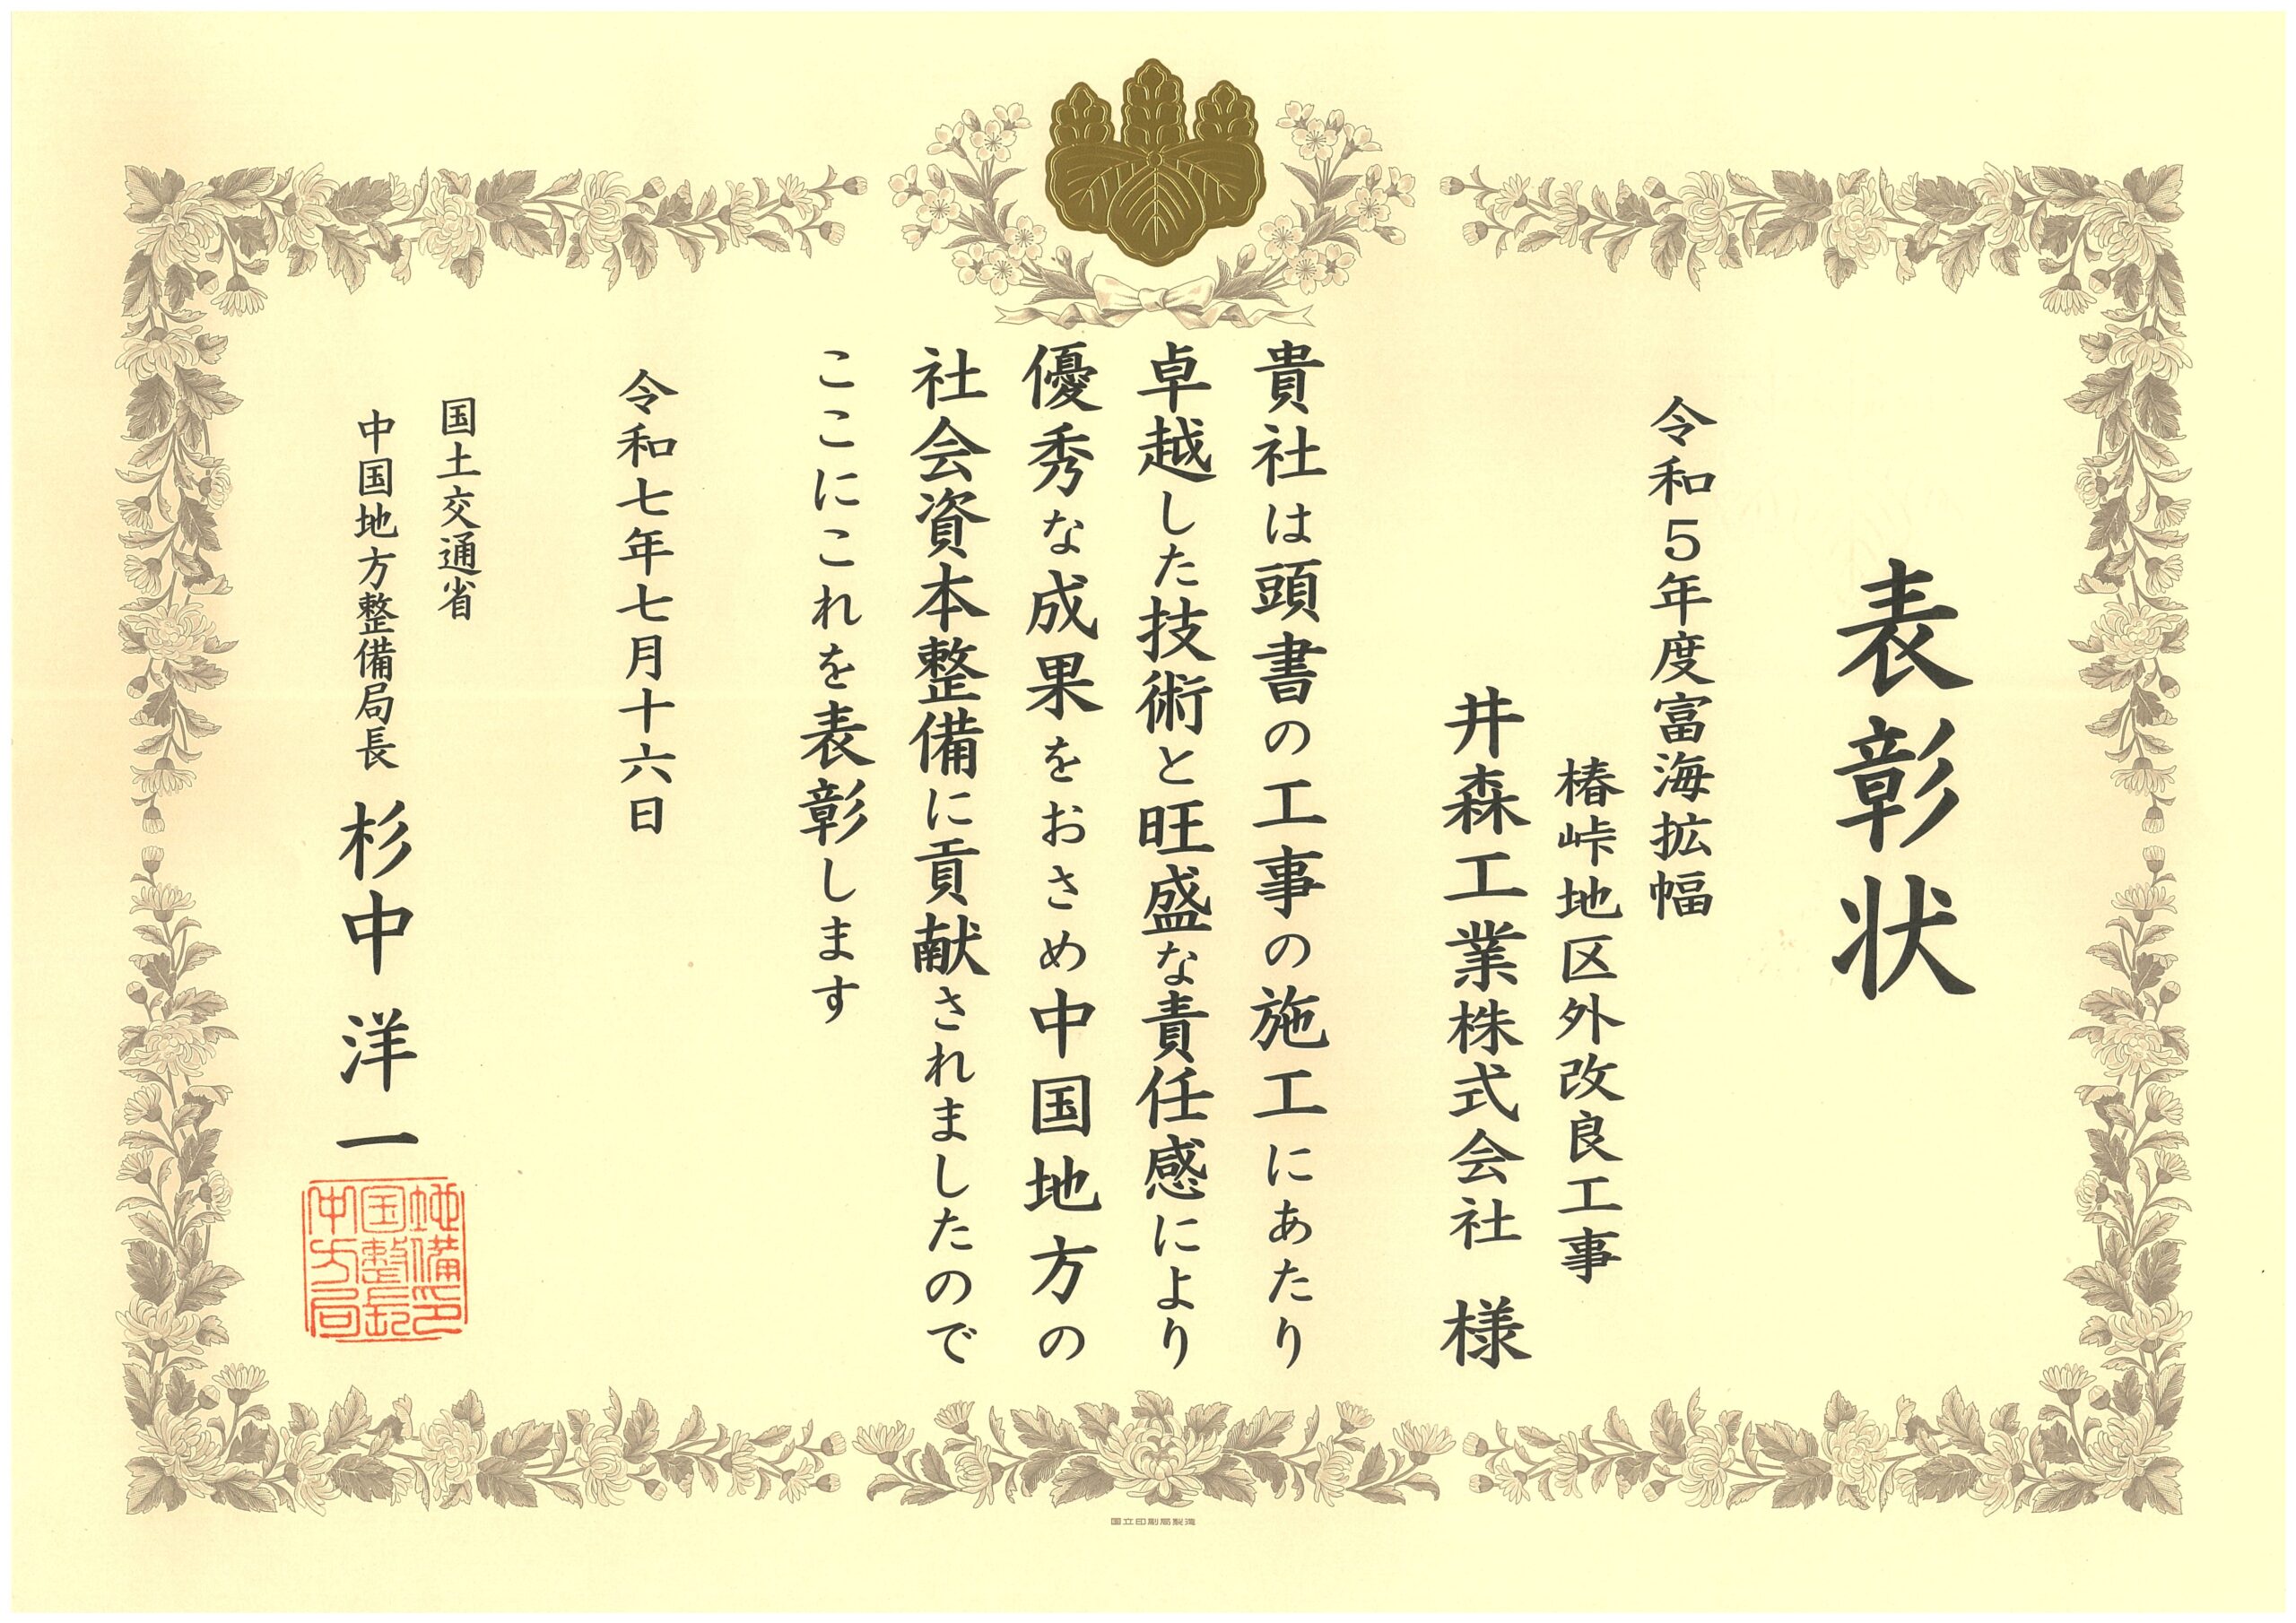 表彰状
令和５年度富海拡幅
椿峠地区外改良工事
井森工業株式会社 様
貴社は頭書の工事の施工にあたり
卓越した技術と旺盛な責任感により
優秀な成果をおさめ中国地方の
社会資本整備に貢献されましたので
ここにこれを表彰します
令和七年七月十六日
国土交通省
中国地方整備局長 杉中洋一
中国地方整備局長印
国立印刷局製造